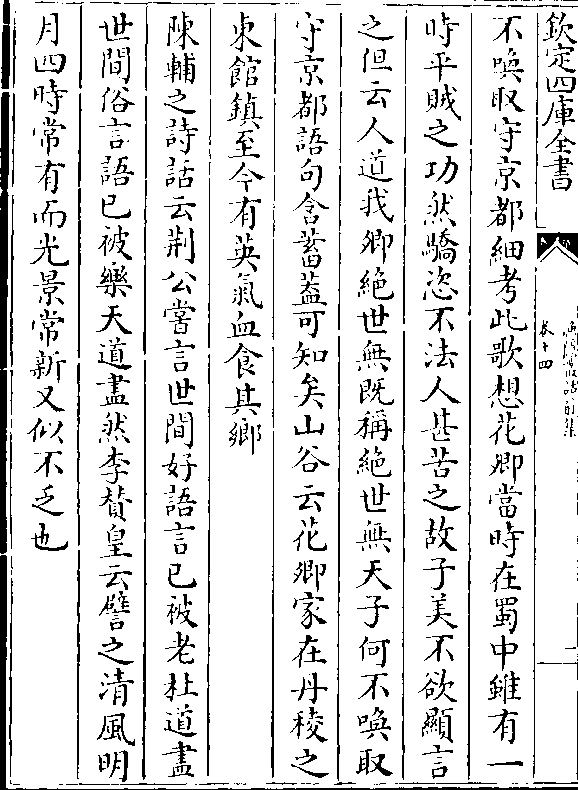 欽定四庫全書
卷十四
不喚取守京都細考此歌想花卿當時在蜀中雖有一
時平賊之功然驕恣不法人甚苦之故子美不欲顯言
之但云人道我卿絶世無既稱絶世無天子何不喚取
守京都語句含蓄葢可知矣山谷云花卿家在丹稜之
東館鎮至今有英氣血食其鄉
陳輔之詩話云荆公嘗言世間好語言已被老杜道盡
世間俗言語已被樂天道盡然李賛皇云譬之清風明
月四時常有而光景常新又似不乏也